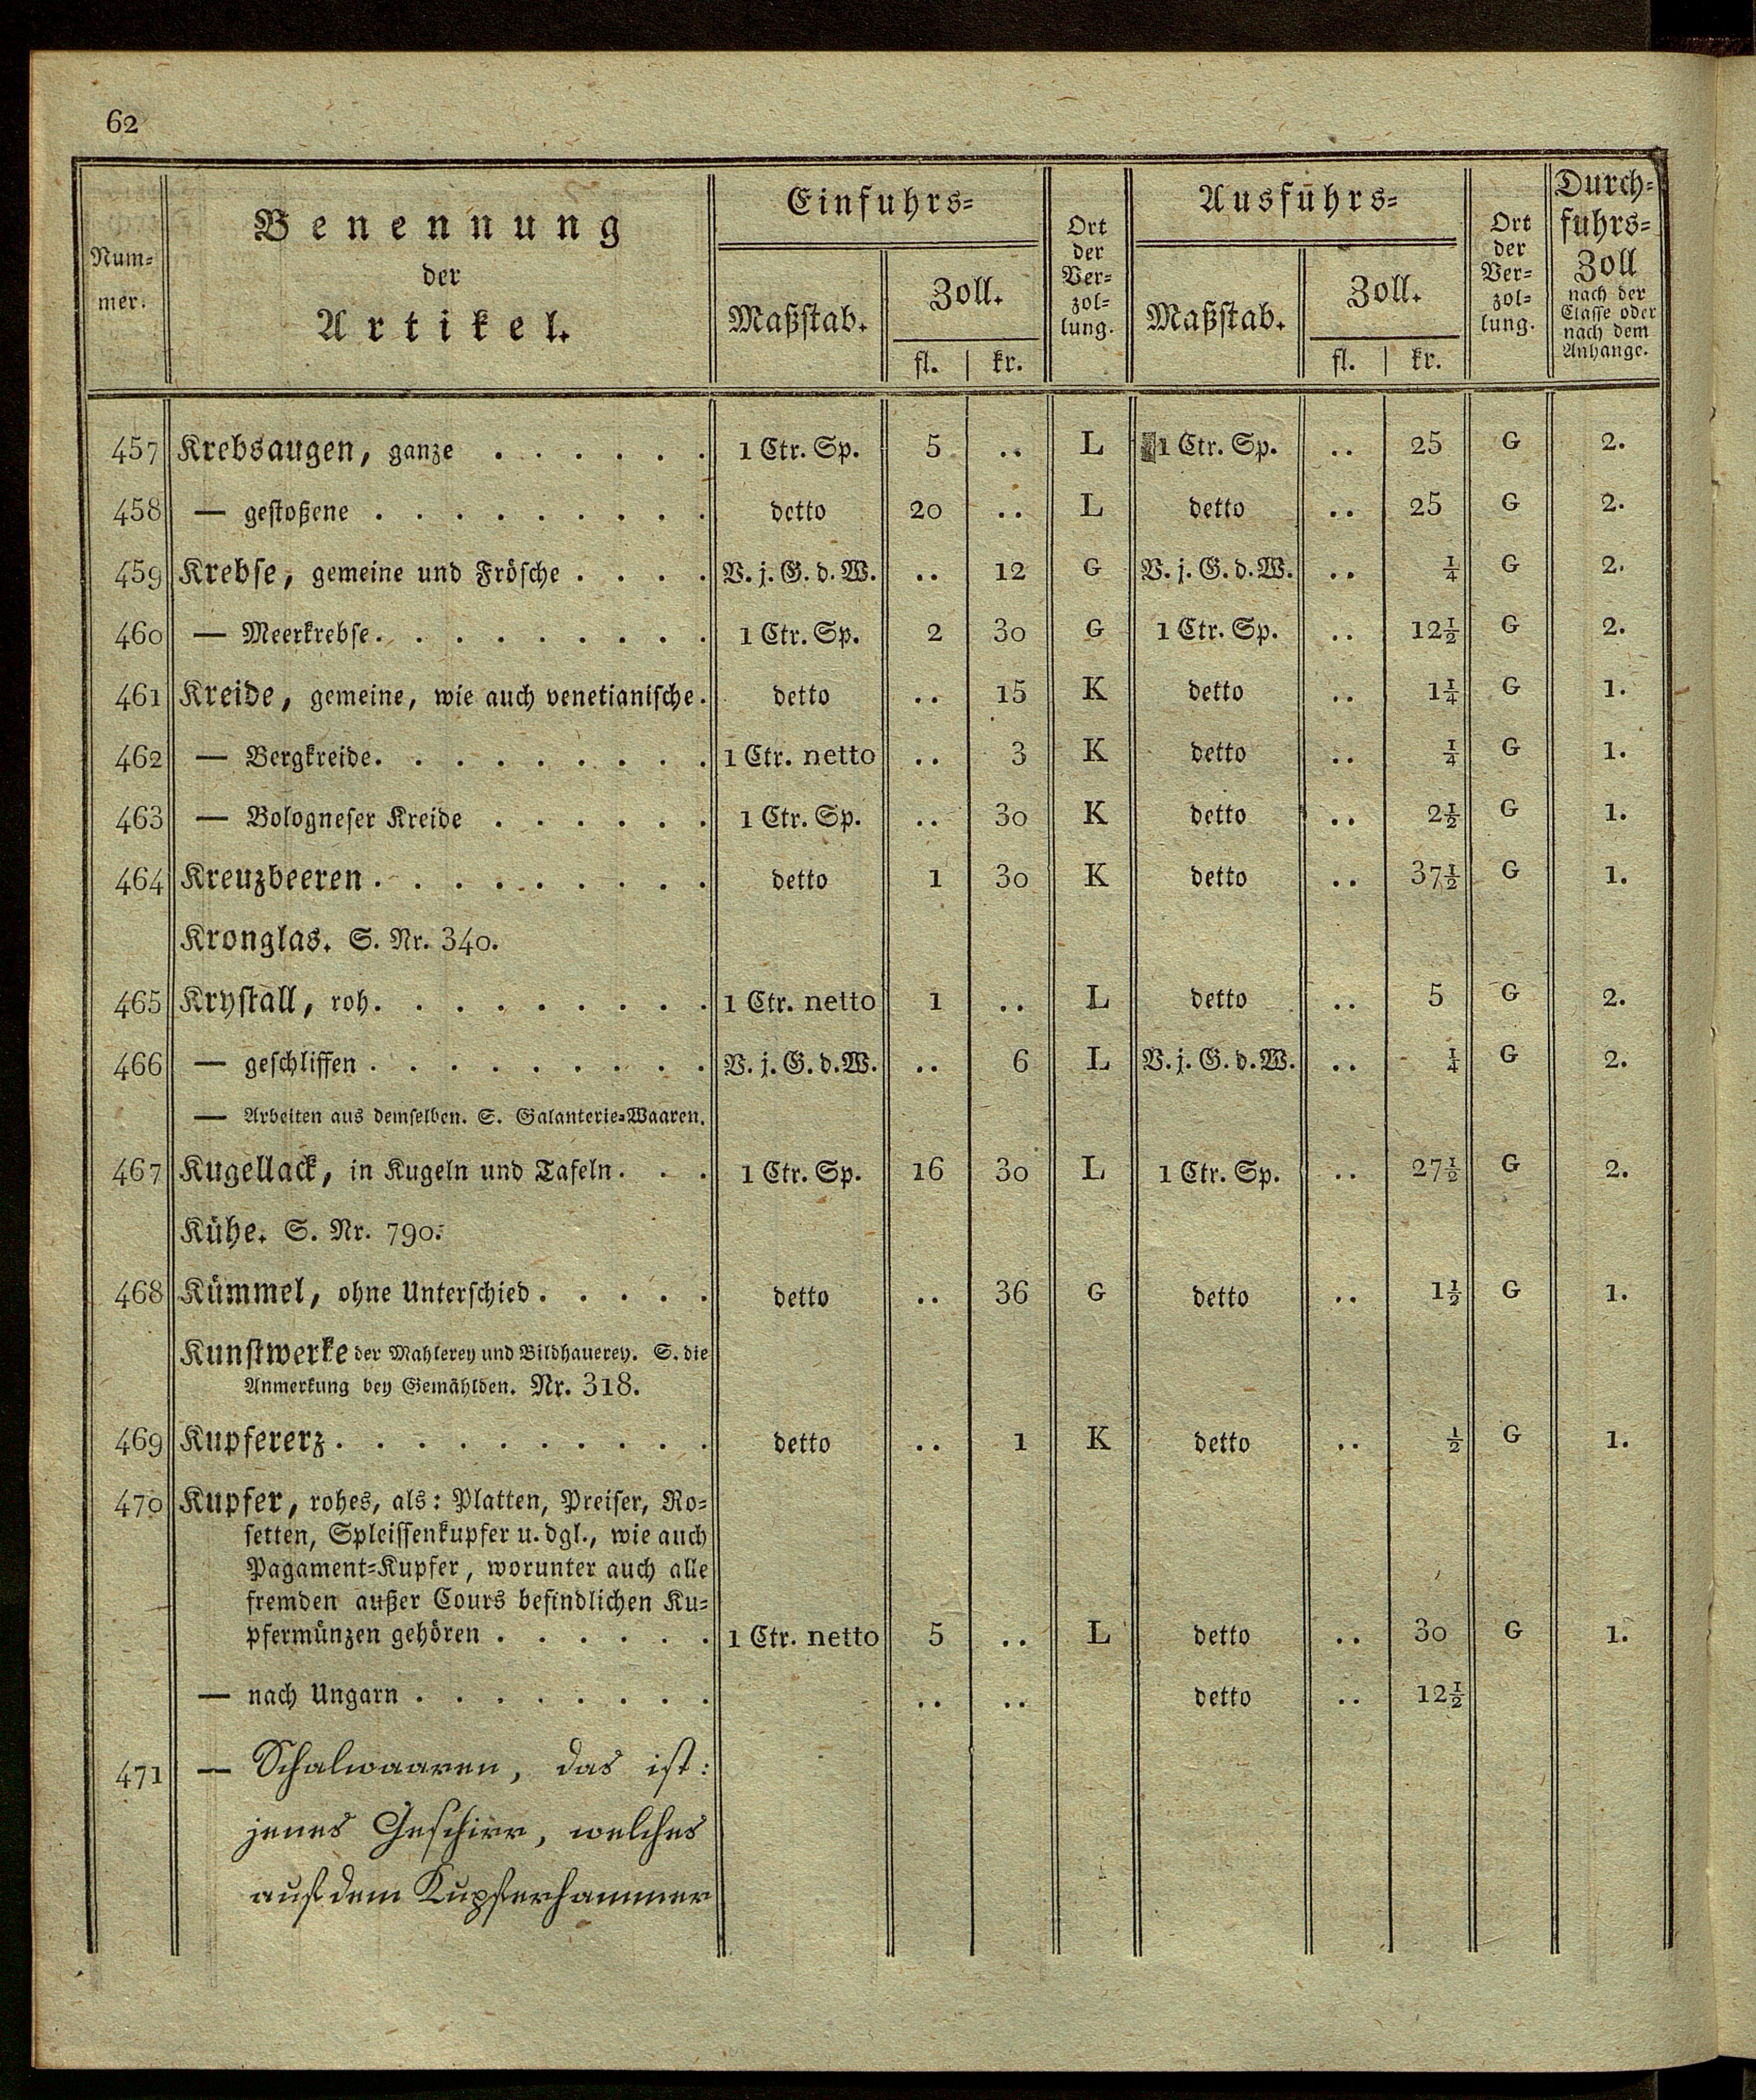 62
Num-
mer.
Benennung
der
Artikel.
Einfuhrs-
Maßstab.
Zoll.
fl. | kr.
Ort
der
Ver-
zol-
lung.
Ausfuhrs-
Maßstab.
Zoll.
fl. | kr.
Ort
der
Ver-
zol-
lung.
Durch-
fuhrs-
Zoll
nach der
Classe oder
nach dem
Anhange.
457 Krebsaugen, ganze . . . . . . 1 Ctr. Sp. 5 .. L 1 Ctr. Sp. .. 25 G 2.
458 — gestoßene . . . . . . . . . detto 20 .. L detto .. 25 G 2.
459 Krebse, gemeine und Frösche . . . . V. j. G. d. W. .. 12 G V. j. G. d. W. .. ¼ G 2.
460 — Meerkrebse. . . . . . . . . 1 Ctr. Sp. 2 30 G 1 Ctr. Sp. .. 12½ G 2.
461 Kreide, gemeine, wie auch venetianische. detto .. 15 K detto .. 1¼ G 1.
462 — Bergkreide. . . . . . . . . 1 Ctr. netto .. 3 K detto .. ¼ G 1.
463 — Bologneser Kreide . . . . . . 1 Ctr. Sp. .. 30 K detto .. 2½ G 1.
464 Kreuzbeeren . . . . . . . . . detto 1 30 K detto .. 37½ G 1.
Kronglas. S. Nr. 340.
465 Krystall, roh. . . . . . . . . 1 Ctr. netto 1 .. L detto .. 5 G 2.
466 — geschliffen . . . . . . . . . V. j. G. d. W. .. 6 L V. j. G. d. W. .. ¼ G 2.
— Arbeiten aus demselben. S. Galanterie-Waaren.
467 Kugellack, in Kugeln und Tafeln. . . 1 Ctr. Sp. 16 30 L 1 Ctr. Sp. .. 27½ G 2.
Kühe. S. Nr. 790.
468 Kümmel, ohne Unterschied . . . . . detto .. 36 G detto .. 1½ G 1.
Kunstwerke der Mahlerey und Bildhauerey. S. die
Anmerkung bey Gemählden. Nr. 318.
469 Kupfererz . . . . . . . . . . detto .. 1 K detto .. ½ G 1.
470 Kupfer, rohes, als: Platten, Preiser, Ro-
setten, Spleissenkupfer u. dgl., wie auch
Pagament-Kupfer, worunter auch alle
fremden außer Cours befindlichen Ku-
pfermünzen gehören . . . . . . 1 Ctr. netto 5 .. L detto .. 30 G 1.
— nach Ungarn . . . . . . . . .. .. detto .. 12½
471 — Schalwaaren, das ist:
jenes Geschirr, welches
auf dem Kupferhammer